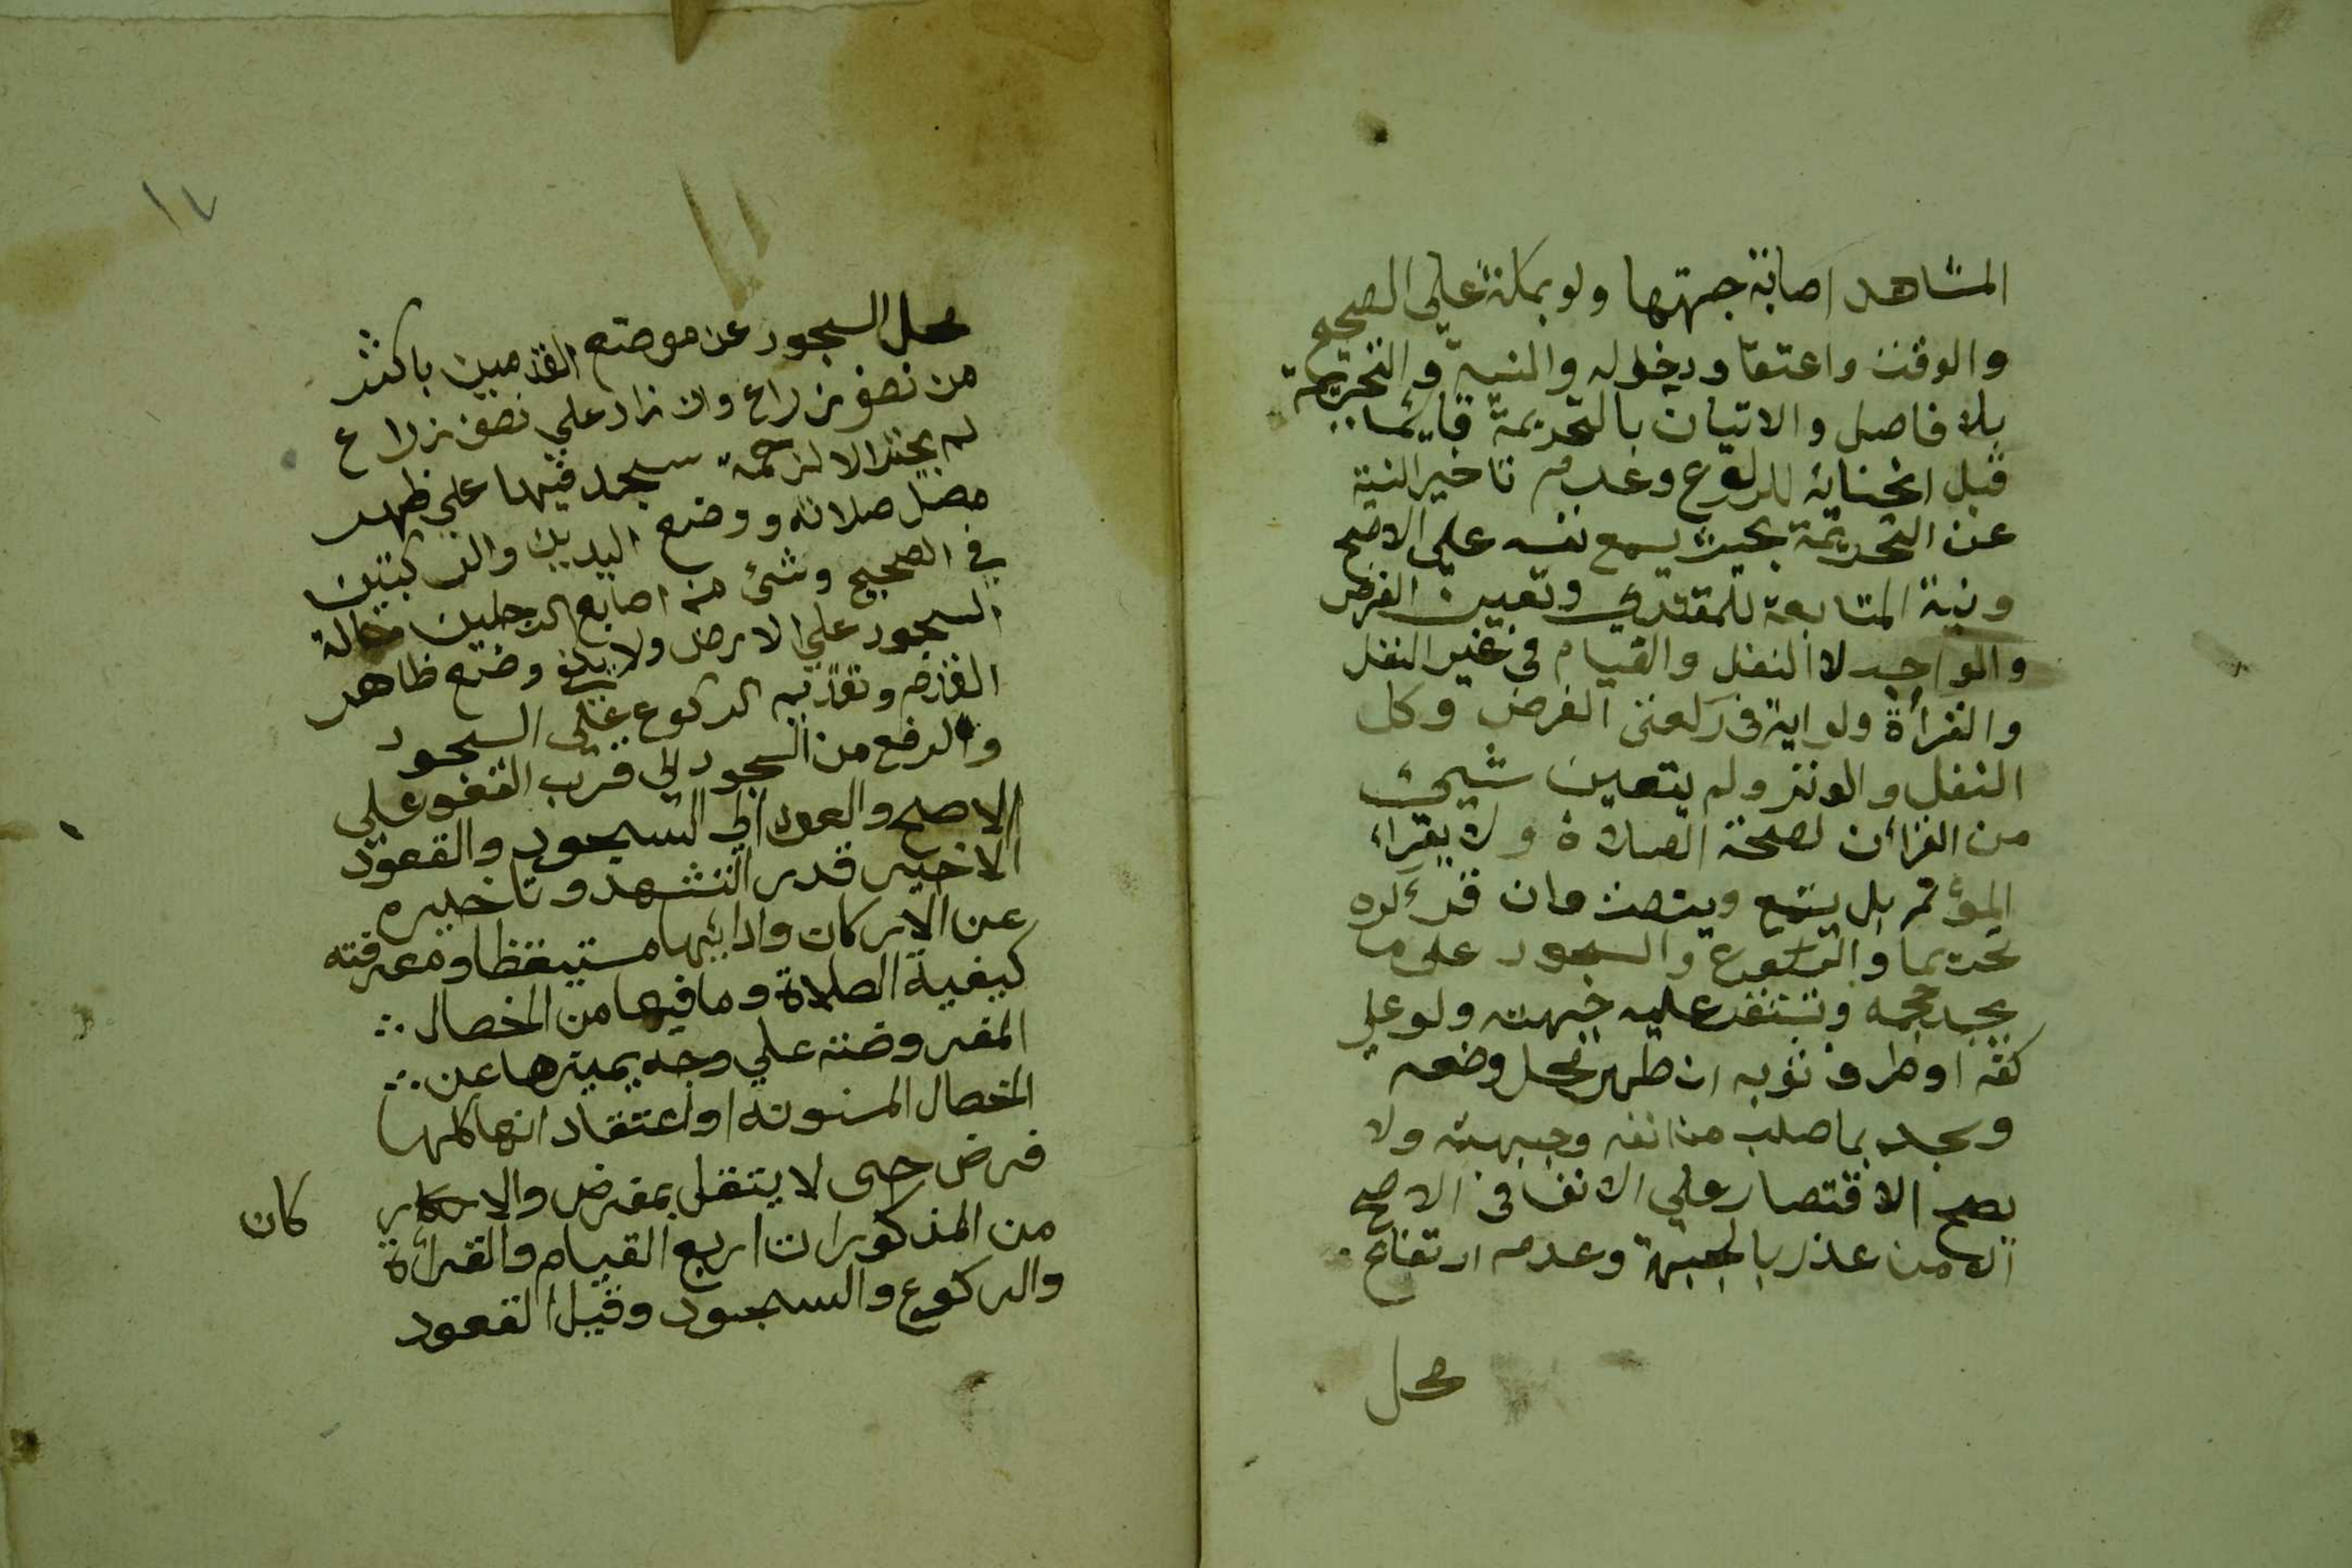 المشاهد اصابة جهتها ولو بمكة علي الصحيح
والوقت واعتقاد دخوله والنية والتحريمة
بلا فاصل والاتيان بالتحريمة قايما
قبل انحنايه للركوع وعدم تاخير النية
عن التحريمة بحيث يسمع نفسه علي الاصح
ونية المتابعة للمقتدي وتعيين الفرض
والواجب لا النفل والقيام في غير النفل
والقرأة ولو اية في ركعتي الفرض وكل
النفل والوتر ولم يتعين شيئ
من القرأن لصحة الصلاة ولا يقراء
المؤتم بل يستمع وينصت وان قرأ كره
تحريما والركوع والسجود على ما
يجد حجمه وتستقر عليه جبهته ولو علي
كفه او طرف ثوبه ان طهر محل وضعه
وسجد بما صلب من انفه وجبهته ولا
يصح الاقتصار علي الانف في الاصح
الا من عذر بالجبهة وعدم ارتفاع
محل
١٧
محل السجود عن موضع القدمين باكثر
من نصف ذراع وان زاد علي نصف ذراع
لم يجز الا لزحمة سجد فيها علي ظهر
مصل صلاته ووضع اليدين والركبتين
في الصحيح وشئ من اصابع الرجلين حالة
السجود علي الارض ولا يكفي وضع ظاهر
القدم وتقديم الركوع علي السجود
والرفع من السجود الي قرب القعود علي
الاصح والعود الي السجود والقعود
الاخير قدر التشهد وتاخيره
عن الاركان وادائها مستيقظا ومعرفته
كيفية الصلاة وما فيها من الخصال
المفروضة علي وجه يميزها عن
الخصال المسنونة او اعتقاد انها كلها
فرض حتى لا يتنفل بمفرض والاركان
من المذكورات اربع القيام والقرأة
والركوع والسجود وقيل القعود
كان